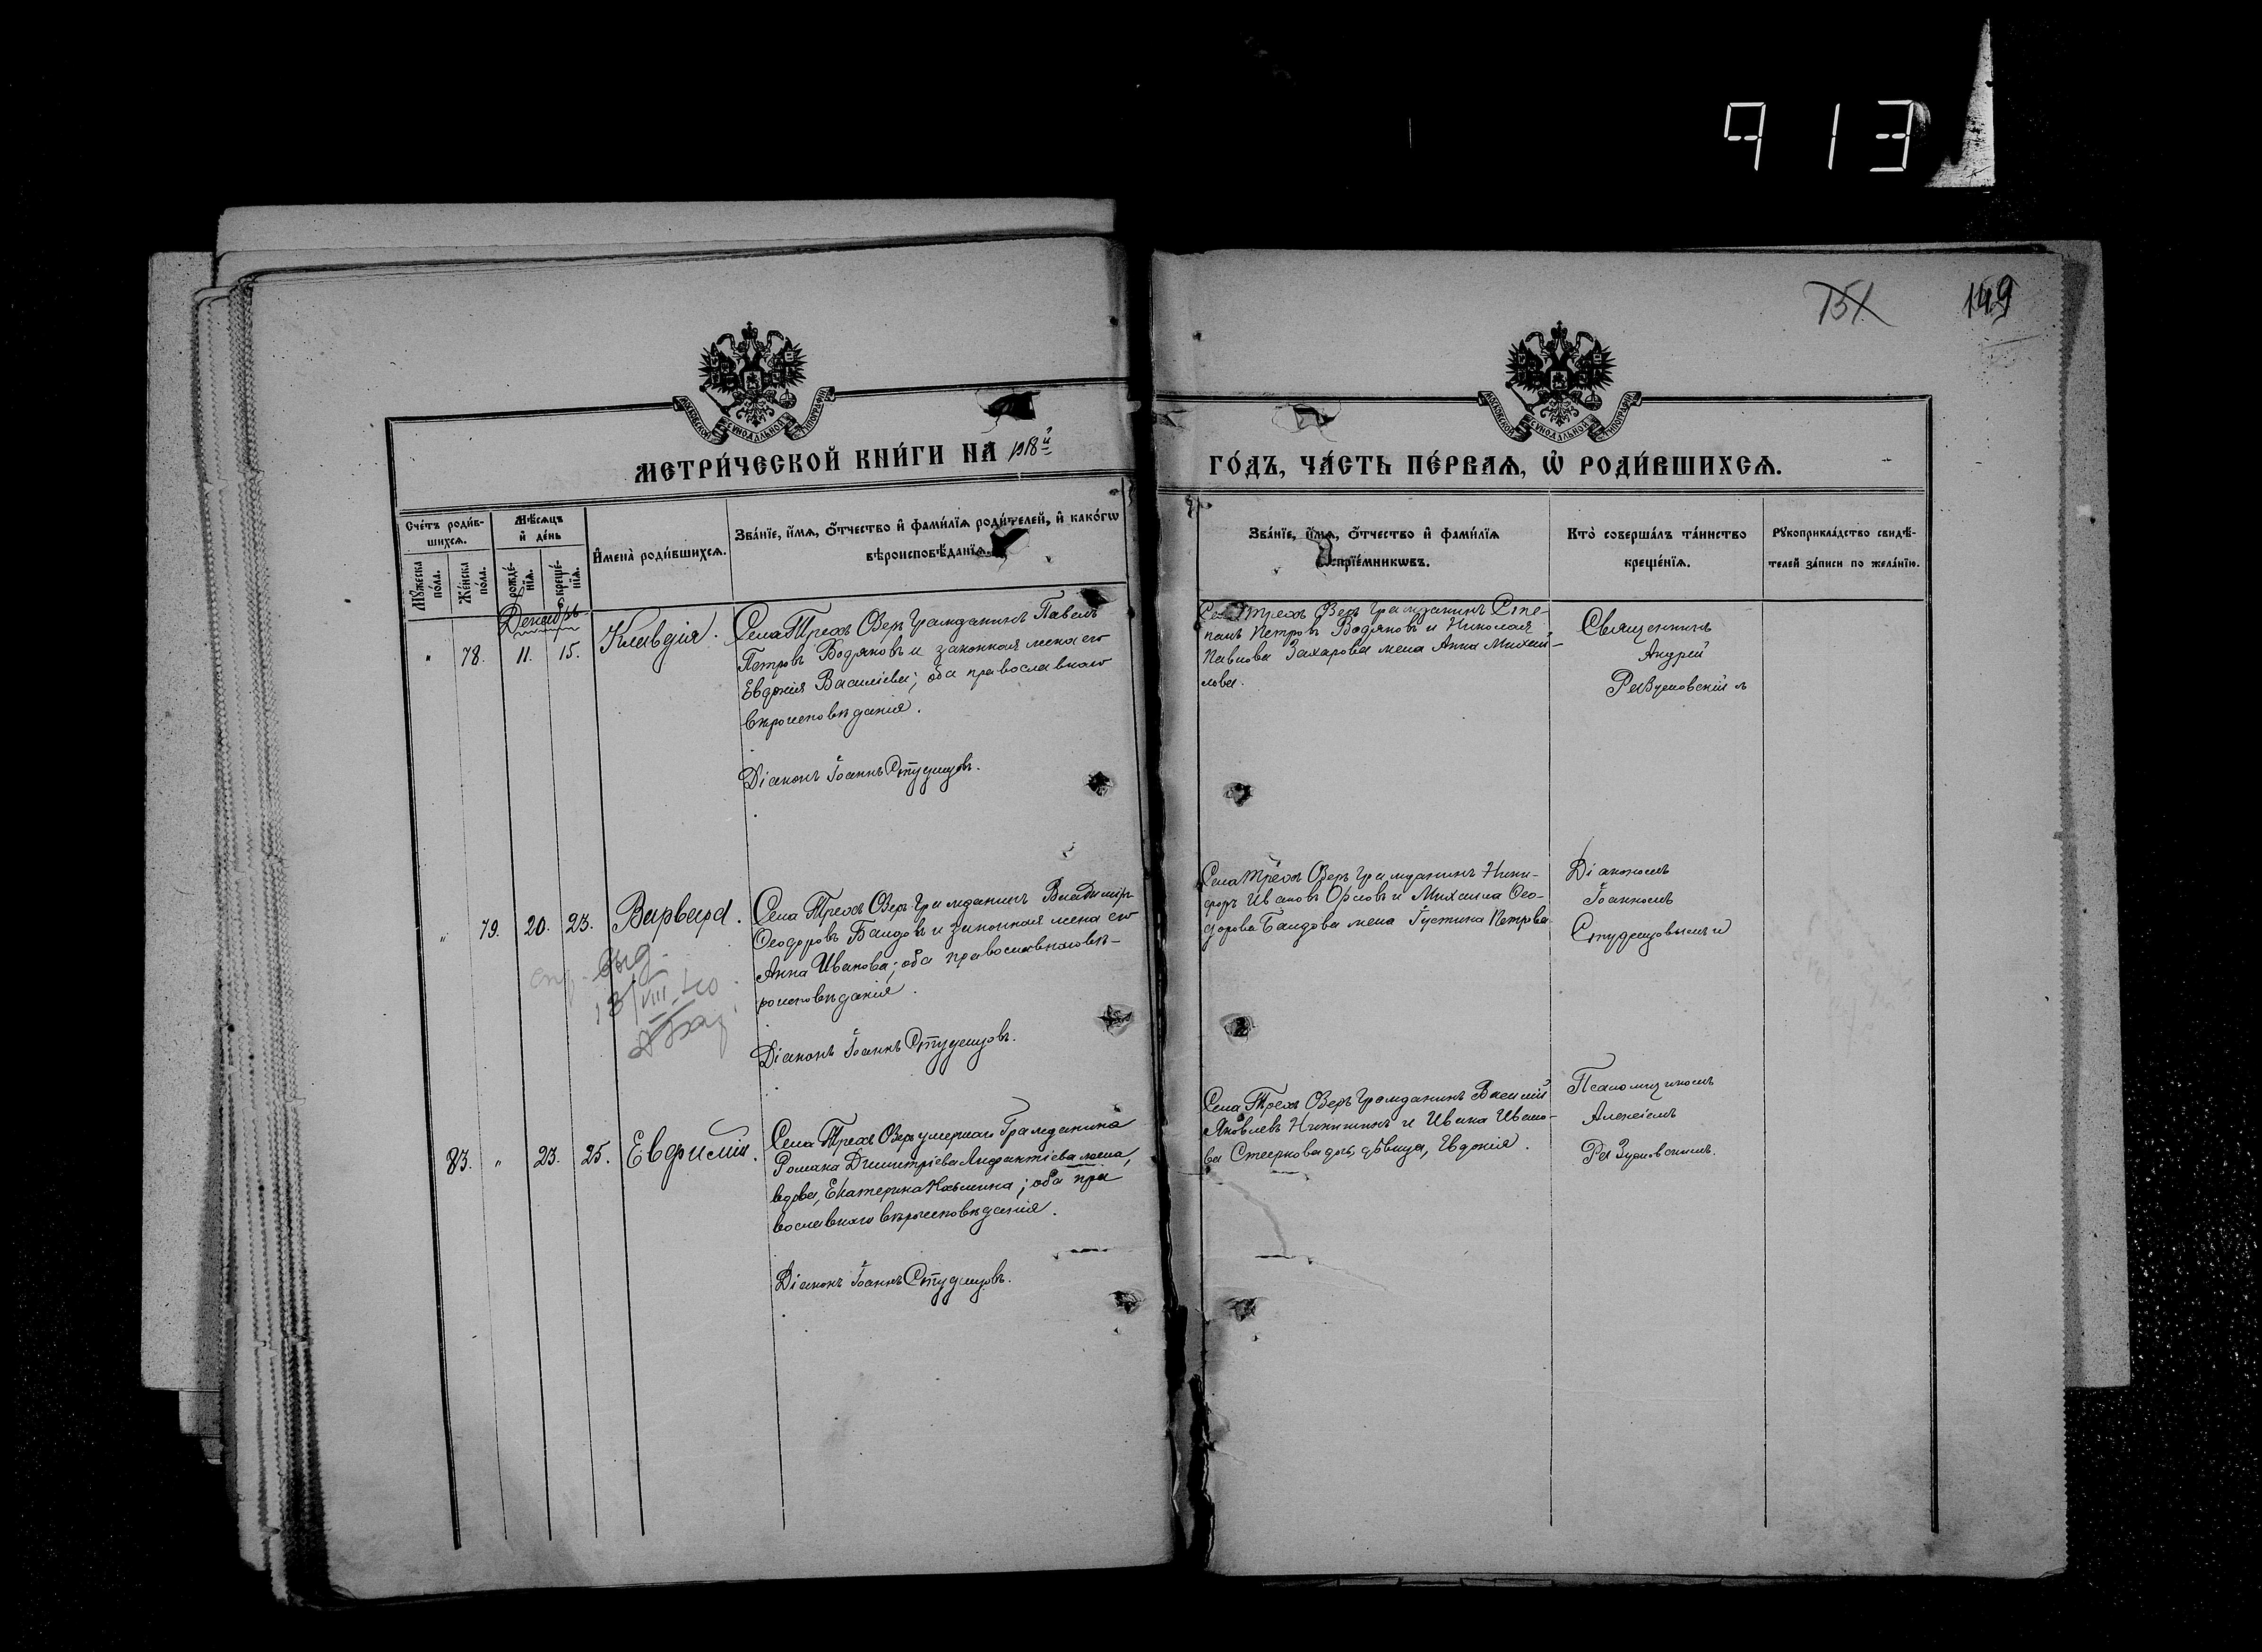 913
151
149
МОСКОВСКОЙ СѴНОДАЛЬНОЙ ТИПОГРАФІИ
МОСКОВСКОЙ СѴНОДАЛЬНОЙ ТИПОГРАФІИ
МЕТРИ́ЧЕСКОЙ КНИ́ГИ НА 1918й
ГО́ДЪ, ЧА́СТЬ ПЕ́РВАѦ, Ѡ҆ РОДИ́ВШИХСѦ.
Сче́тъ роди́в-
шихсѧ.
Мꙋ́жеска по́ла.
Же́нска по́ла.
Мѣ́сѧцъ
и҆ де́нь
рожде́-
нїѧ.
креще́-
нїѧ.
И҆мена̀ роди́вшихсѧ.
Зва́нїе, и҆́мѧ, ѻ҆́тчество и҆ фами́лїѧ роди́телей, и҆ како́гѡ
вѣроисповѣ́данїѧ.
Зва́нїе, и҆́мѧ, ѻ҆́тчество и҆ фами́лїѧ
воспрїе́мникѡвъ.
Кто̀ соверша́лъ та́инство
креще́нїѧ.
Рꙋкоприкла́дство свидѣ́-
телей за́писи по жела́нїю.
Декабрь
" 78. 11. 15. Клавдія.
Села Трехъ Озеръ гражданинъ Павелъ
Петровъ Водяновъ и законная жена его
Евдокія Василіева; оба православнаго
вѣроисповѣданія.
Діаконъ Іоаннъ Студенцовъ.
Села Трехъ Озеръ гражданинъ Сте-
панъ Петровъ Водяновъ и Николая
Павлова Захарова жена Анна Михай-
лова.
Священникъ
Андрей
Разумовскій
" 79. 20. 23. Варвара.
Села Трехъ Озеръ гражданинъ Владиміръ
Ѳеодоровъ Баидовъ и законная жена его
Анна Иванова; оба православнаго вѣ-
роисповѣданія.
Діаконъ Іоаннъ Студенцовъ.
выд.
13/VIII-40
Села Трехъ Озеръ гражданинъ Ники-
форъ Ивановъ Орловъ и Михаила Ѳео-
дорова Баидова жена Іустина Петрова
Діакономъ
Іоанномъ
Студенцовымъ
83. " 23. 25. Евфимій.
Села Трехъ Озеръ умершаго гражданина
Романа Димитріева жена,
вдова, Екатерина Козьмина; оба пра
вославнаго вѣроисповѣданія.
Діаконъ Іоаннъ Студенцовъ.
Села Трехъ Озеръ гражданинъ Василій
Яковлевъ Никишинъ и Ивана Ивано-
ва дочь, дѣвица, Евдокія.
Псаломщикомъ
Алексіемъ
Разумовскимъ.